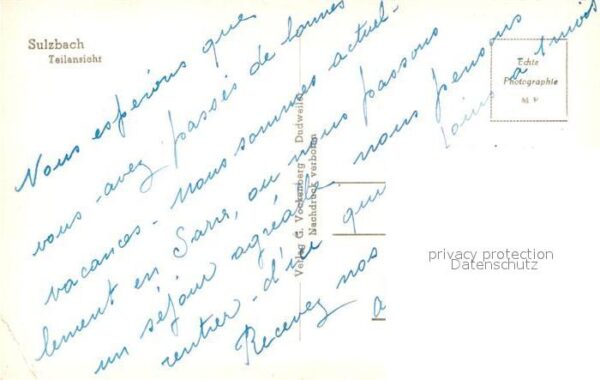 Sulzbach
Teilansicht
Echte
Photographie
M F
Nous espérons que
vous avez passés de bonnes
vacances. Nous sommes actuel-
lement en Sarre, ou nous passons
un séjour agréable, nous pensons
rentrer d'ici qui
Recevez nos
a
Verlag G. Vockenberg Dudweiler
Nachdruck verboten
privacy protection
Datenschutz